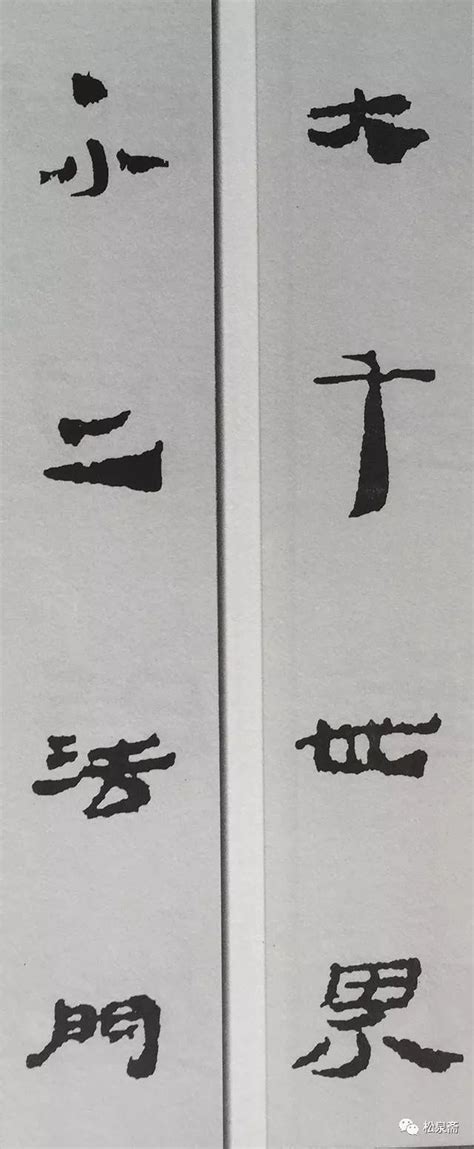 大千世界
不二法門
松泉斋